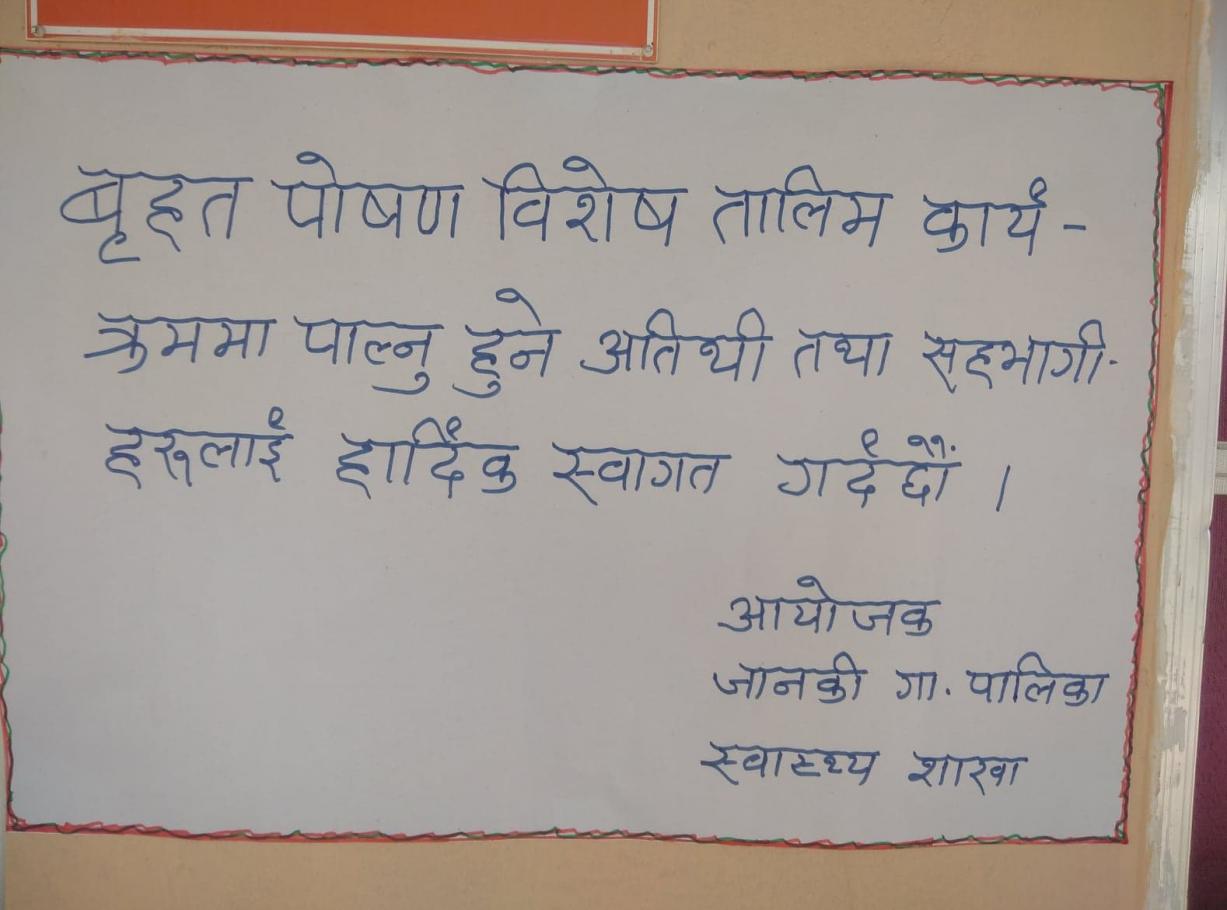 बृहत पोषण विशेष तालिम कार्य -
क्रममा पाल्नु हुने अतिथी तथा सहभागी-
हरूलाई हार्दिक स्वागत गर्दछौं ।
आयोजक
जानकी गा. पालिका
स्वास्थ्य शाखा